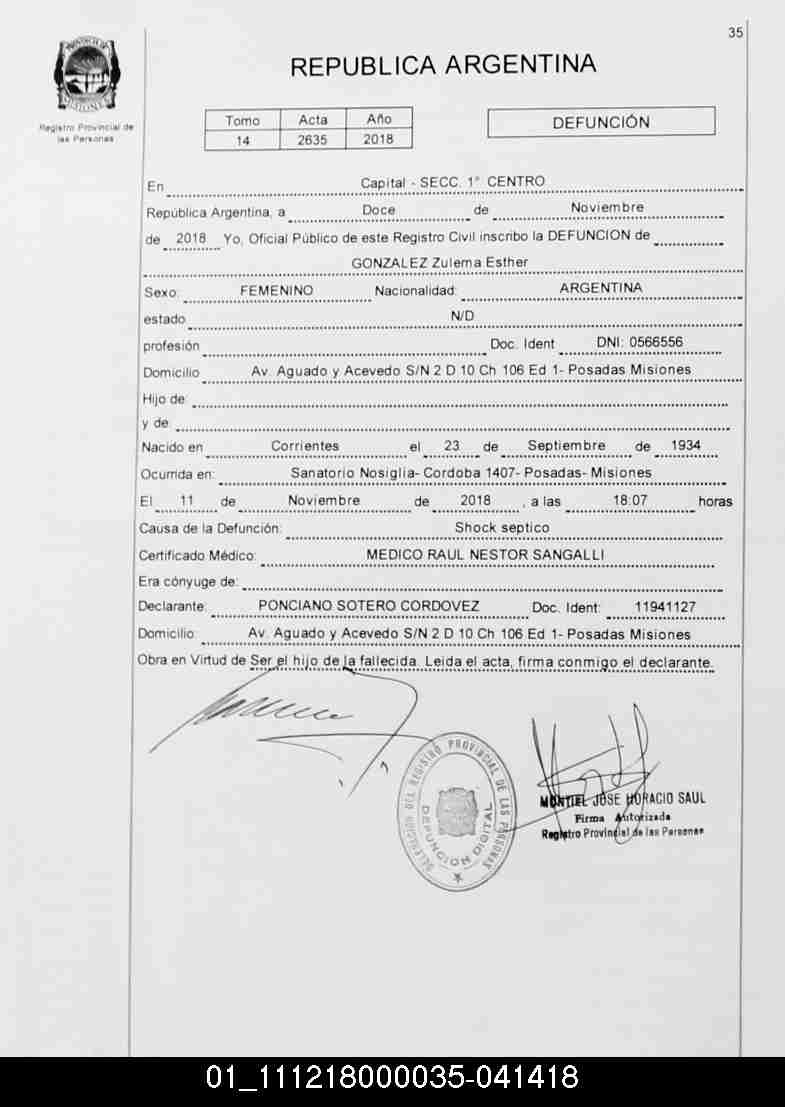 35
PROVINCIA DE
MISIONES
Registro Provincial de
las Personas
REPUBLICA ARGENTINA
Tomo Acta Año
14 2635 2018
DEFUNCIÓN
En Capital - SECC. 1° CENTRO
República Argentina, a Doce de Noviembre
de 2018 Yo, Oficial Público de este Registro Civil inscribo la DEFUNCION de
GONZALEZ Zulema Esther
Sexo: FEMENINO Nacionalidad: ARGENTINA
estado N/D
profesión Doc. Ident DNI: 0566556
Domicilio Av. Aguado y Acevedo S/N 2 D 10 Ch 106 Ed 1- Posadas Misiones
Hijo de:
y de:
Nacido en Corrientes el 23 de Septiembre de 1934
Ocurrida en: Sanatorio Nosiglia- Cordoba 1407- Posadas- Misiones
El 11 de Noviembre de 2018 , a las 18:07 horas
Causa de la Defunción: Shock septico
Certificado Médico: MEDICO RAUL NESTOR SANGALLI
Era cónyuge de:
Declarante: PONCIANO SOTERO CORDOVEZ Doc. Ident: 11941127
Domicilio: Av. Aguado y Acevedo S/N 2 D 10 Ch 106 Ed 1- Posadas Misiones
Obra en Virtud de Ser el hijo de la fallecida. Leida el acta, firma conmigo el declarante.
DELEGACION DEL REGISTRO PROVINCIAL DE LAS PERSONAS
DEFUNCION DIGITAL
MONTIEL JOSE HORACIO SAUL
Firma Autorizada
Registro Provincial de las Personas
01_111218000035-041418